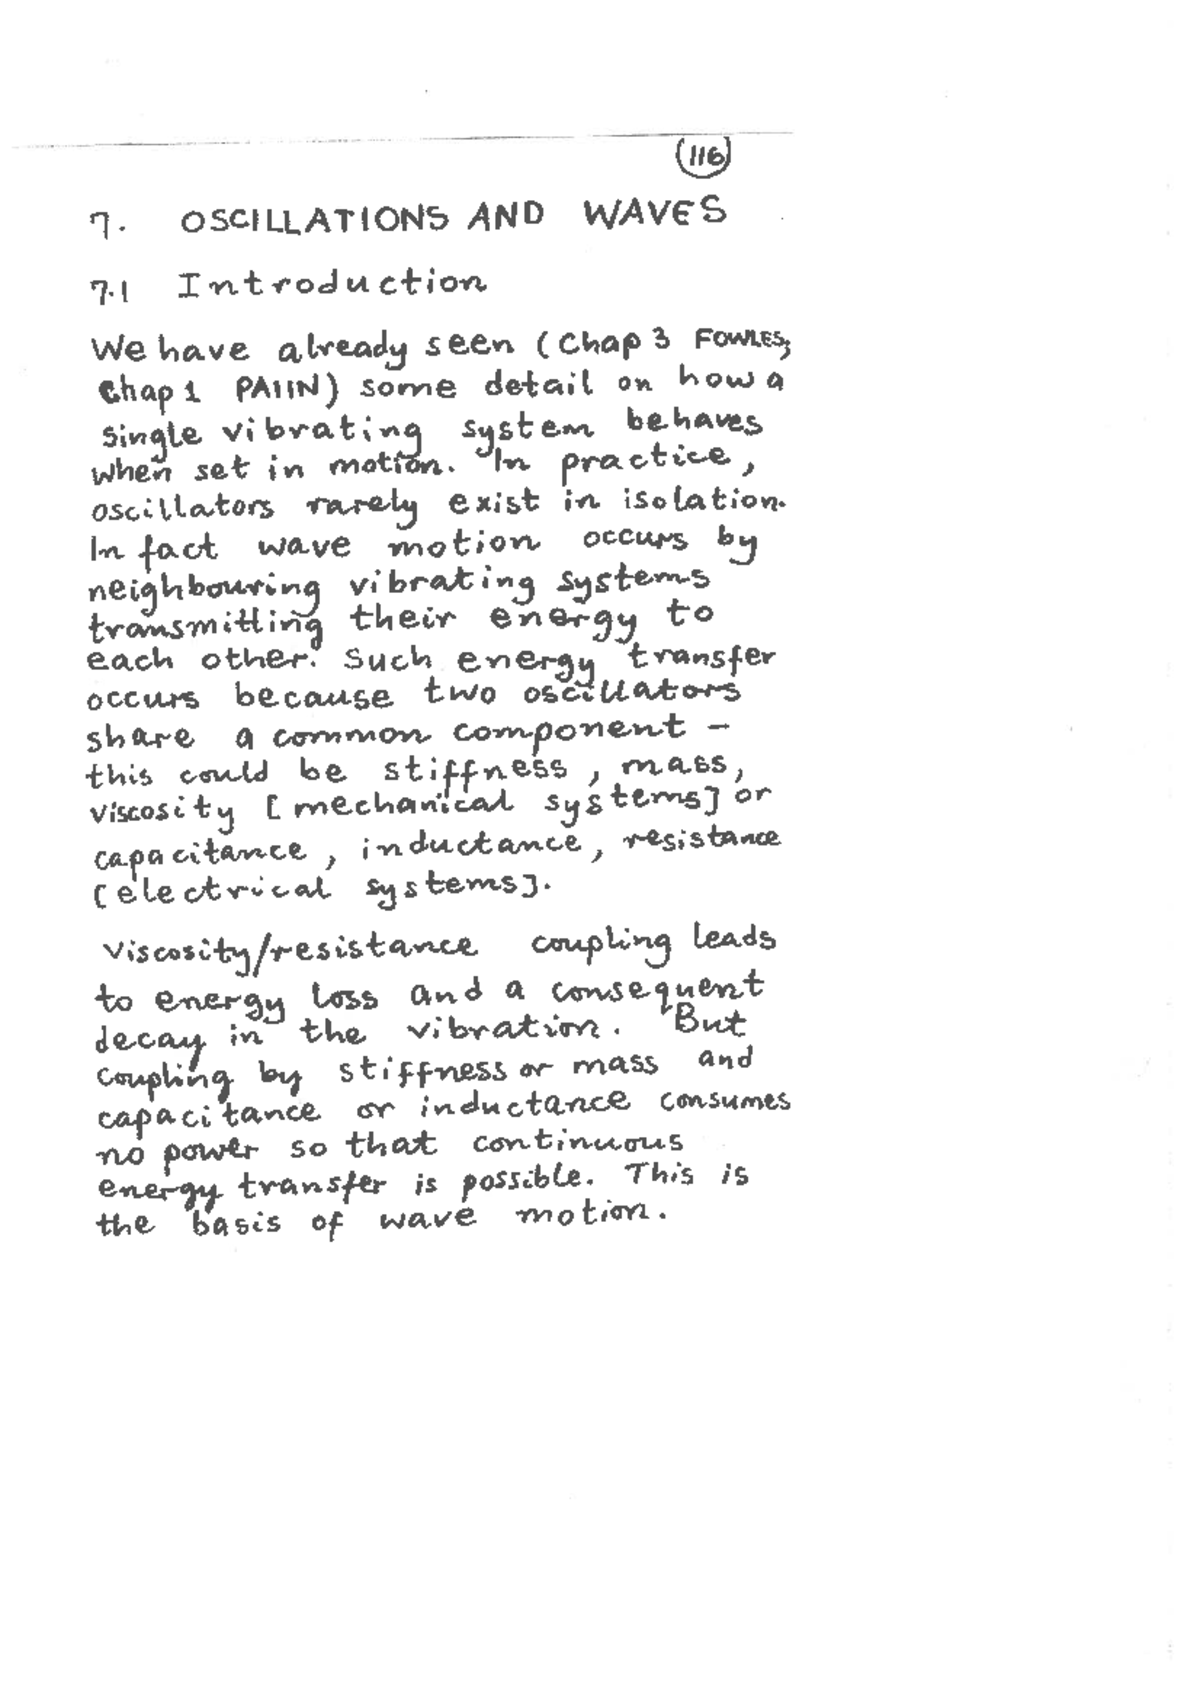 (116)
7. OSCILLATIONS AND WAVES
7.1 Introduction
We have already seen (Chap 3 FOWLES;
Chap 1 PAIIN) some detail on how a
single vibrating system behaves
when set in motion. In practice,
oscillators rarely exist in isolation.
In fact wave motion occurs by
neighbouring vibrating systems
transmitting their energy to
each other. Such energy transfer
occurs because two oscillators
share a common component -
this could be stiffness, mass,
viscosity [mechanical systems] or
capacitance, inductance, resistance
[electrical systems].
Viscosity/resistance coupling leads
to energy loss and a consequent
decay in the vibration. But
coupling by stiffness or mass and
capacitance or inductance consumes
no power so that continuous
energy transfer is possible. This is
the basis of wave motion.